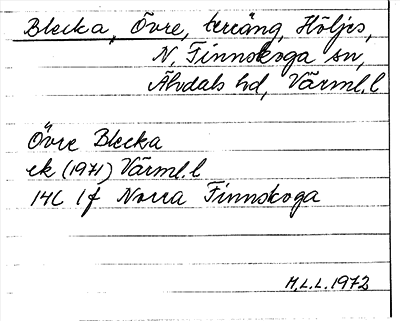 Blecka, Övre, terräng, Höljes,
N. Finnskoga sn,
Älvdals hd, Värml. l
Övre Blecka
ek (1971) Värml. l
14C 1f Norra Finnskoga
H.L.L. 1972